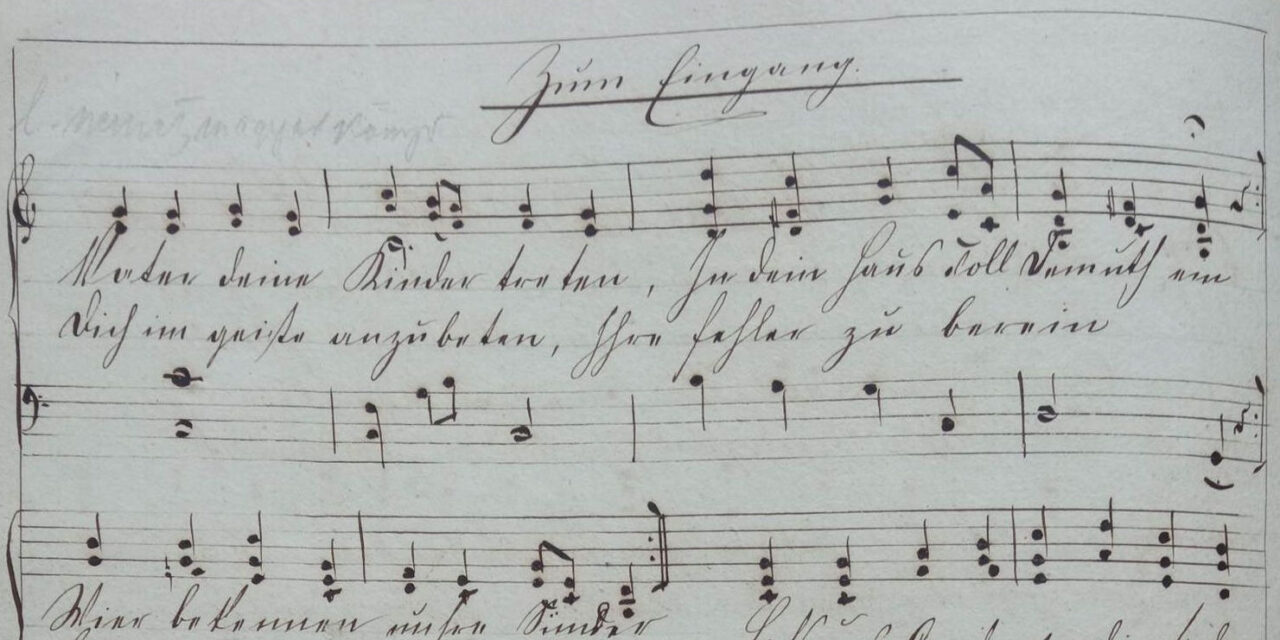 Zum Eingang.
Vater deine Kinder treten, In dein Haus voll Demuth ein
Dich im geiste anzubeten, Ihre fehler zu berein
Wier bekennen unsre Sünder